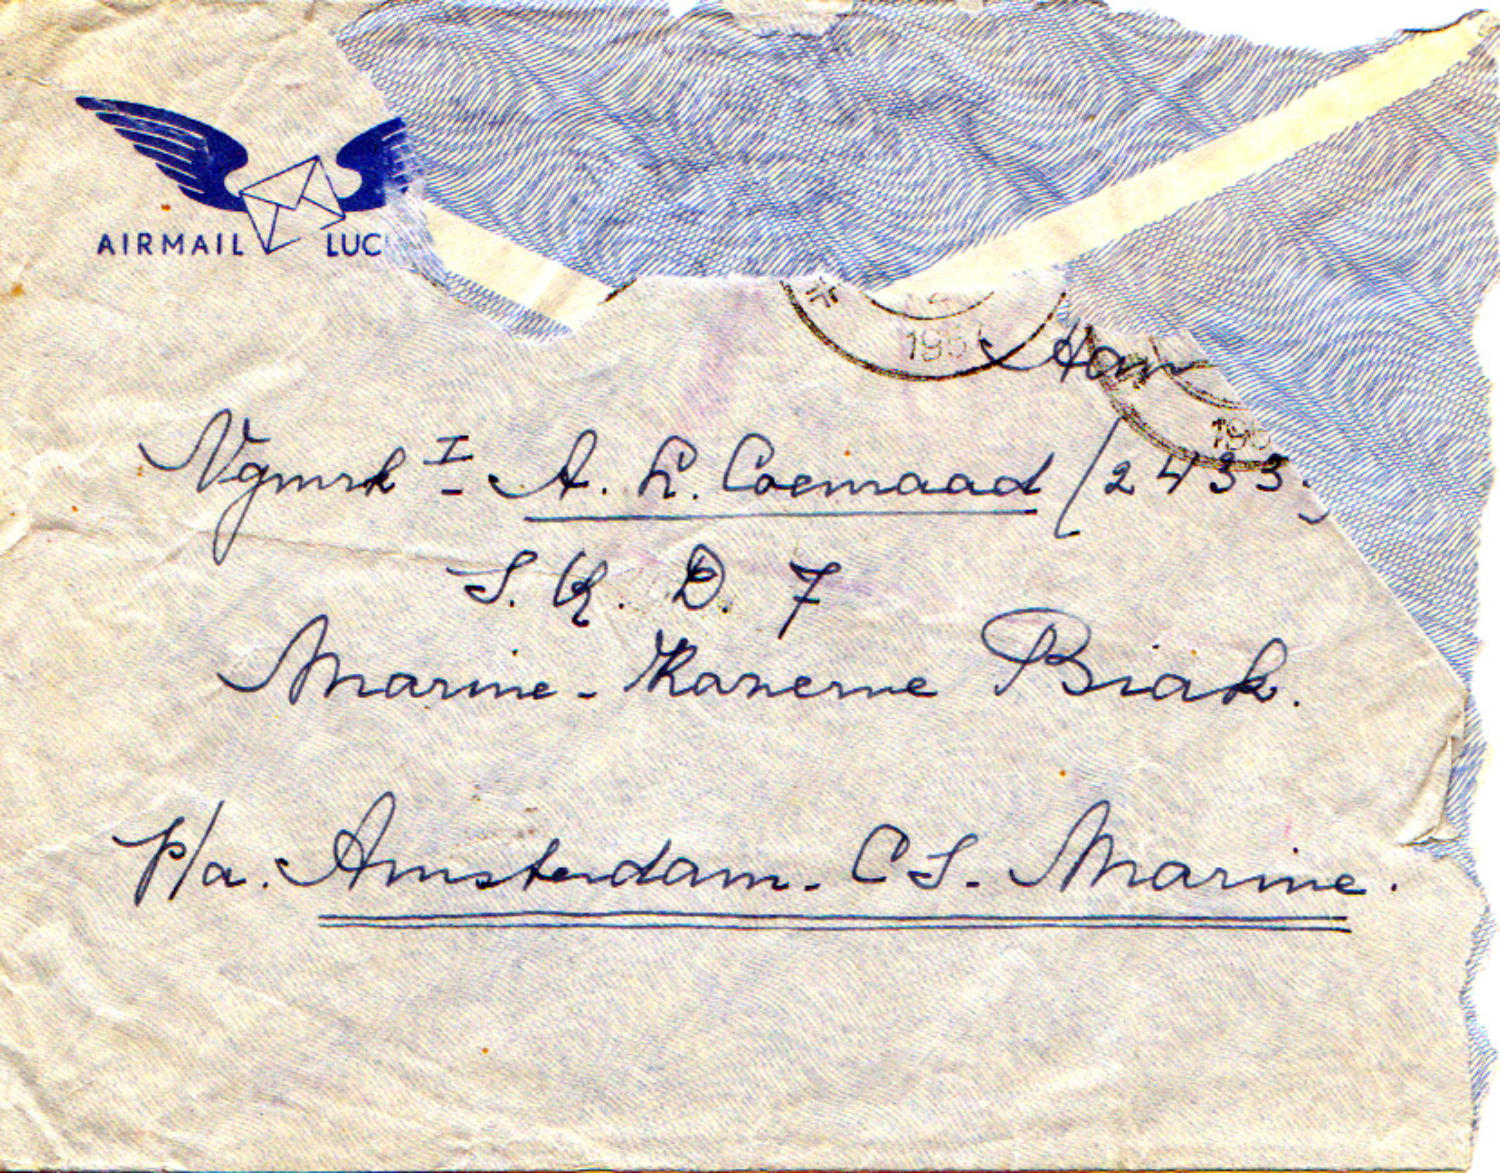 AIRMAIL LUC
195
Aan
195
Vgmrk I A. L. Coemaad (2433
S. K. D. 7
Marine-Kazerne Biak.
p/a. Amsterdam. C S. Marine.